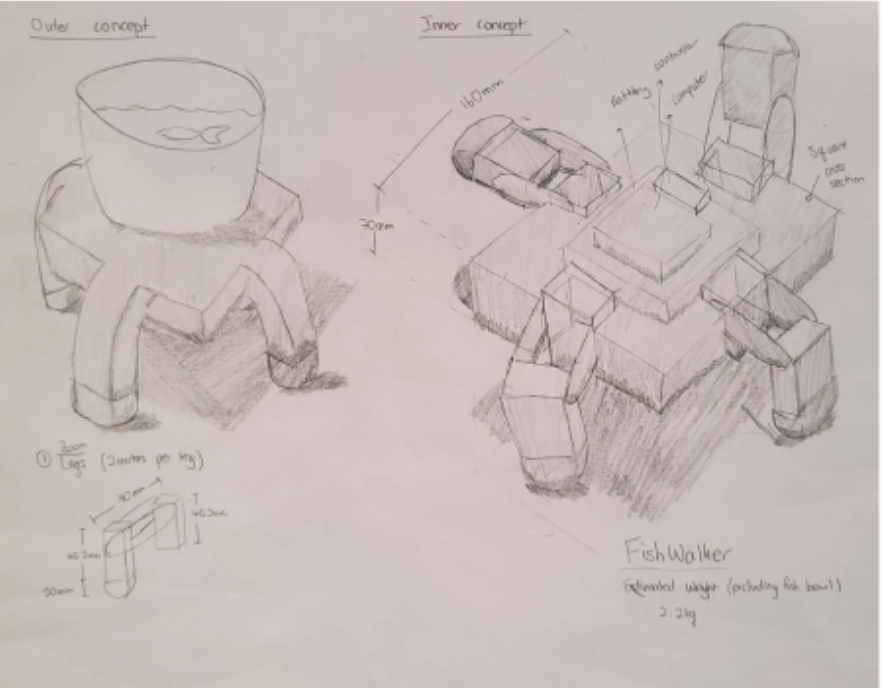 Outer concept
Inner concept
160mm
Battery
controller
computer
Square
cross
section
70mm
① Zoom
Legs (2 motors per leg)
46.2mm
20mm
FishWalker
Estimated weight (excluding fish bowl)
: 2.2kg